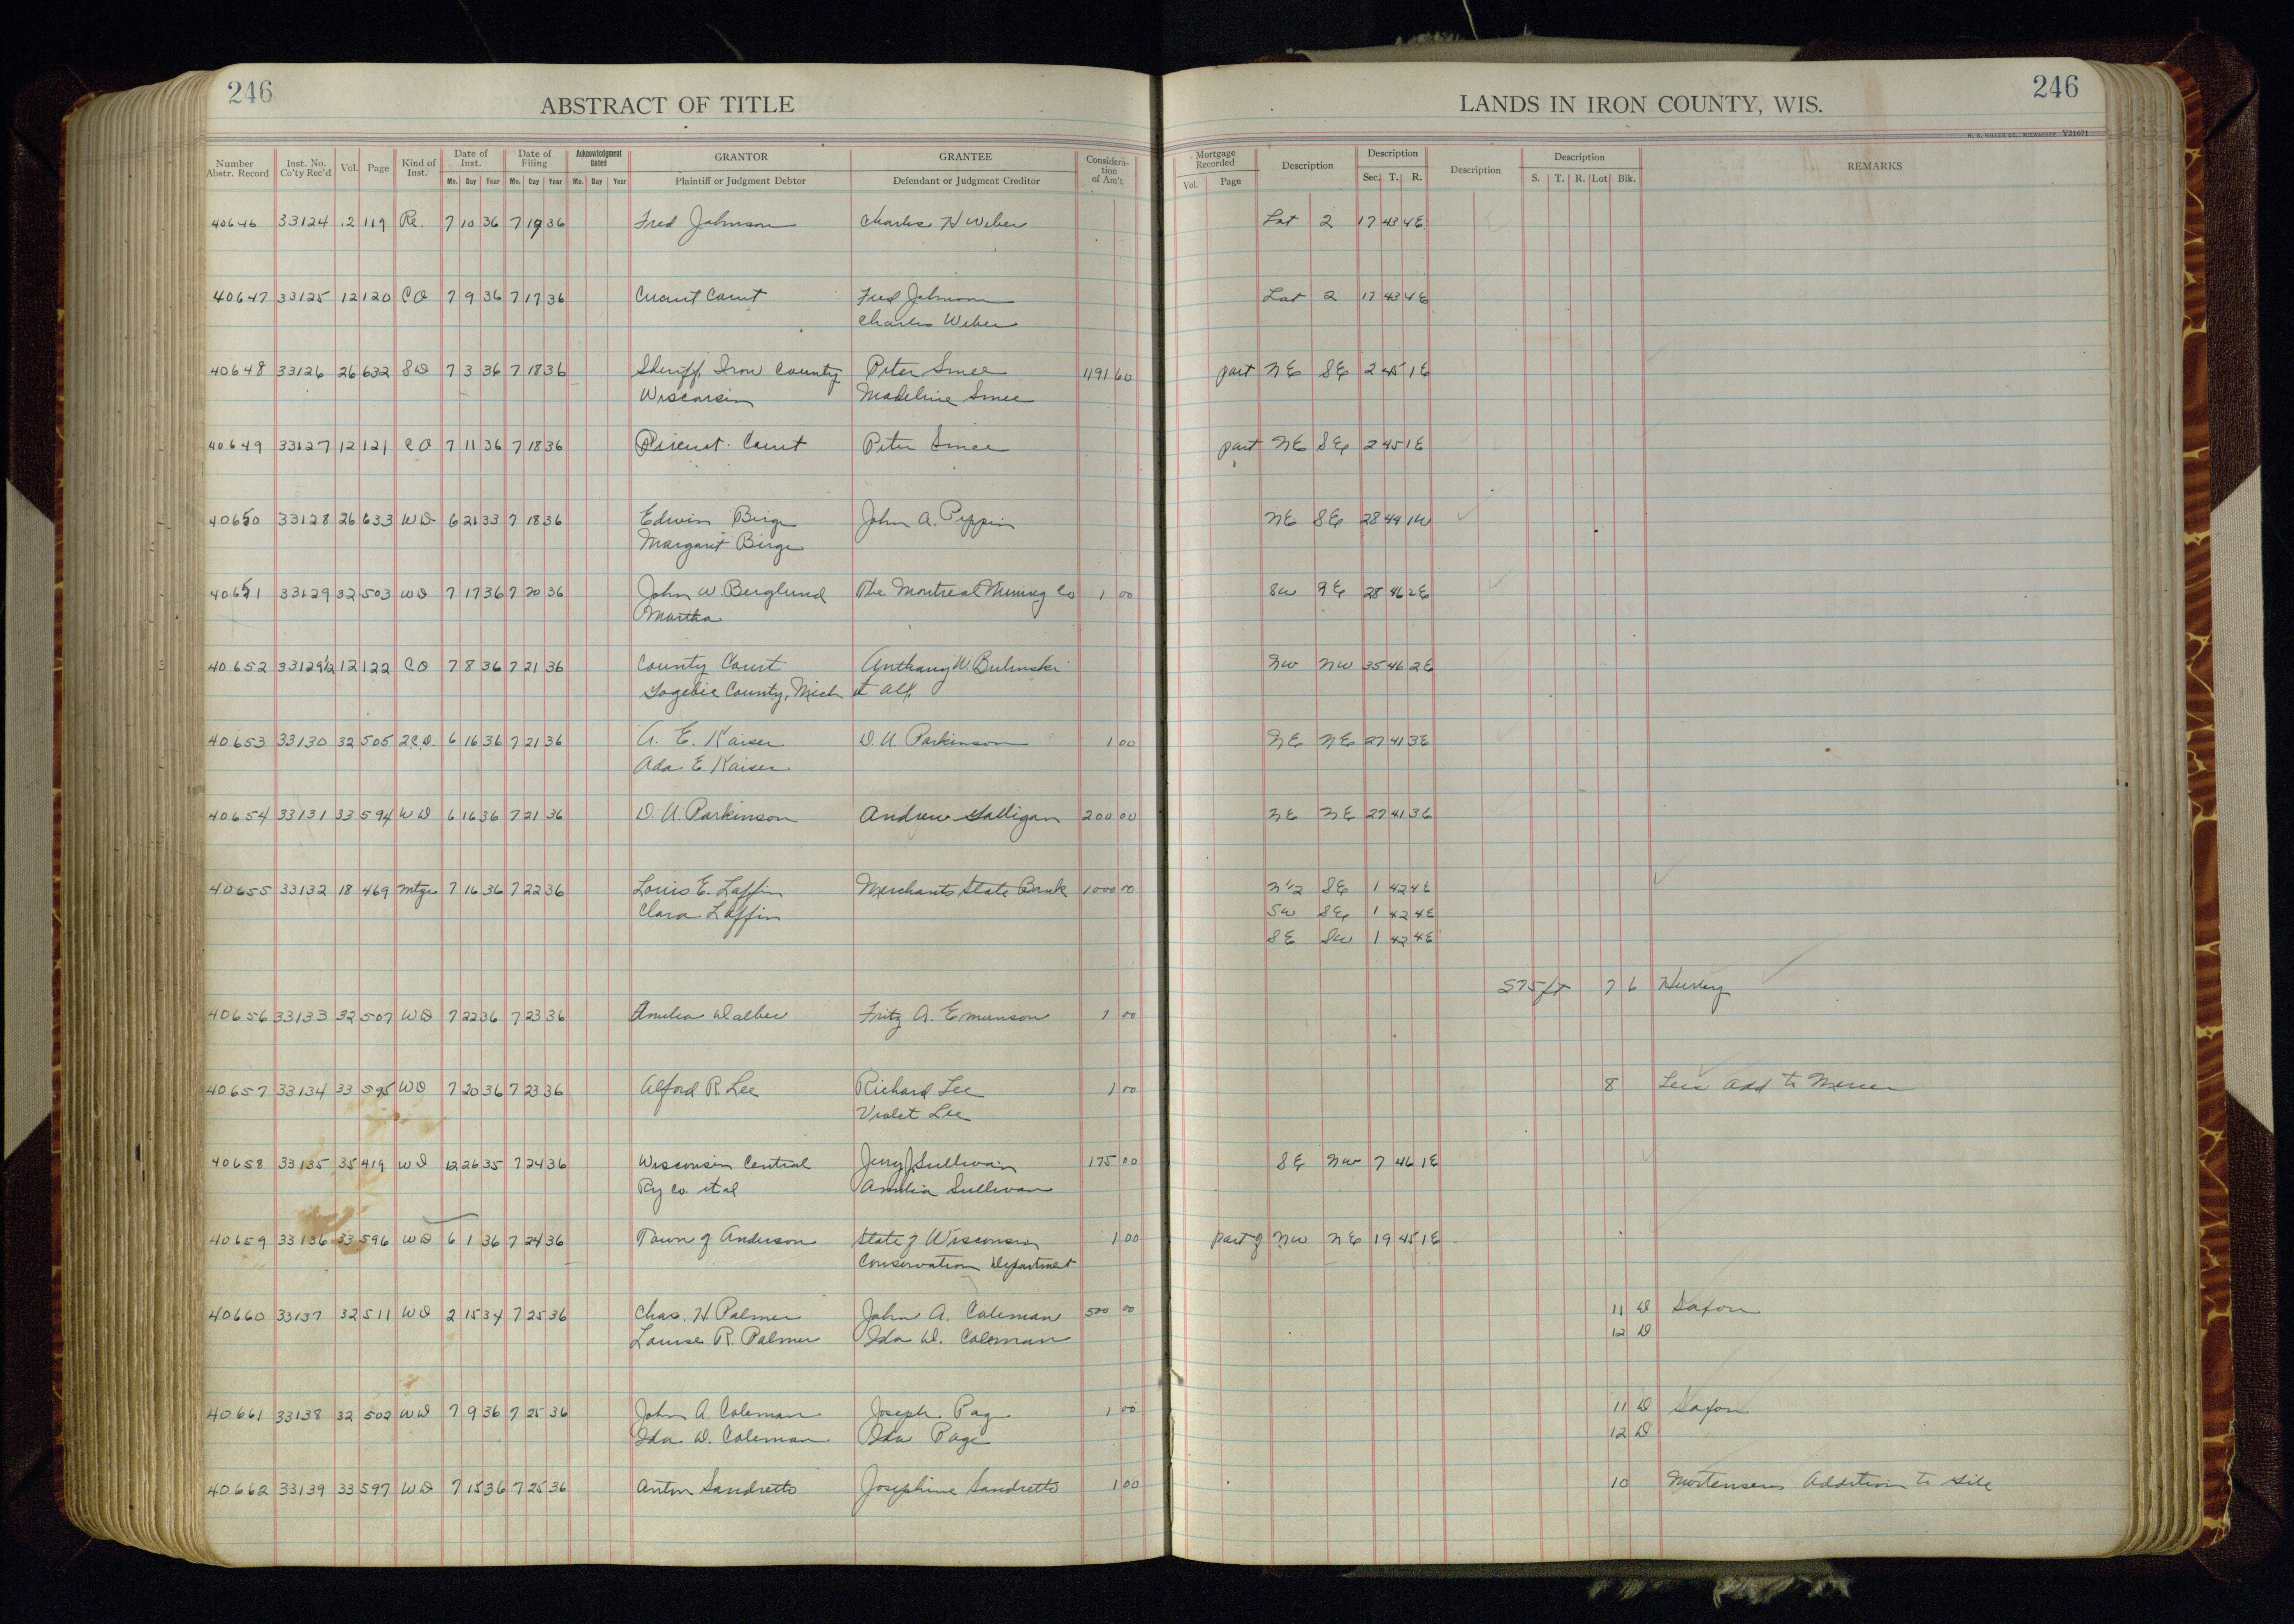 246
ABSTRACT OF TITLE
LANDS IN IRON COUNTY, WIS.
246
H. C. MILLER CO., MILWAUKEE Y21671
Number Abstr. Record Inst. No. Co'ty Rec'd Vol. Page Kind of Inst. Date of Inst. Mo. Day Year Date of Filing Mo. Day Year Acknowledgment Dated Mo. Day Year GRANTOR Plaintiff or Judgment Debtor GRANTEE Defendant or Judgment Creditor Considera-tion of Am't Mortgage Recorded Vol. Page Description Description Sec. T. R. Description Description S. T. R. Lot Blk. REMARKS
40646 33124 12 119 Re. 7 10 36 7 19 36 Fred Johnson Charles H Weber Lot 2 17 43 4E
40647 33125 12 120 CO 7 9 36 7 17 36 Circuit Court Fred Johnson Lot 2 17 43 4E
Charles Weber
40648 33126 26 632 SD 7 3 36 7 18 36 Sheriff, Iron County Peter Smee 1191 60 part NE SE 2 45 1E
Wisconsin Madeline Smee
40649 33127 12 121 CO 7 11 36 7 18 36 Circuit Court Peter Smee part NE SE 2 45 1E
40650 33128 26 633 WD 6 21 33 7 18 36 Edwin Birge John A. Pippin NE SE 28 44 1W
Margaret Birge
40651 33129 32 503 WD 7 17 36 7 20 36 John W. Berglund The Montreal Mining Co 1 00 SW SE 28 46 2E
Martha
40652 33129½ 12 122 CO 7 8 36 7 21 36 County Court Anthony W. Bulinski NW NW 35 46 2E
Gogebic County, Mich et al
40653 33130 32 505 2CD. 6 16 36 7 21 36 A. E. Kaiser D. U. Parkinson 1 00 NE NE 27 41 3E
Ada E. Kaiser
40654 33131 33 594 WD 6 16 36 7 21 36 D. U. Parkinson Andrew Galligan 200 00 NE NE 27 41 3E
40655 33132 18 469 mtge 7 16 36 7 22 36 Louis E. Laffin Merchants State Bank 1000 00 N½ SE 1 42 4E
Clara Laffin SW SE 1 42 4E
SE SW 1 42 4E
S75ft 7 6 Hurley
40656 33133 32 507 WD 7 22 36 7 23 36 Amelia Dalbec Fritz A. Emunson 1 00
40657 33134 33 595 WD 7 20 36 7 23 36 Alford R. Lee Richard Lee 1 00 8 Lees Add to Mercer
Violet Lee
40658 33135 35 419 WD 12 26 35 7 24 36 Wisconsin Central Jerry J. Sullivan 175 00 SE NW 7 46 1E
Ry Co. et al Amelia Sullivan
40659 33136 33 596 WD 6 1 36 7 24 36 Town of Anderson State of Wisconsin 1 00 part of NW NE 19 45 1E
Conservation Department
40660 33137 32 511 WD 2 15 34 7 25 36 Chas. H Palmer John A. Coleman 500 00 11 D Saxon
Louise R. Palmer Ida D. Coleman 12 D
40661 33138 32 502 WD 7 9 36 7 25 36 John A. Coleman Joseph Page 1 00 11 D Saxon
Ida D. Coleman Ida Page 12 D
40662 33139 33 597 WD 7 15 36 7 25 36 Anton Sandretto Josephine Sandretto 1 00 10 Mortensens Addition to Gile